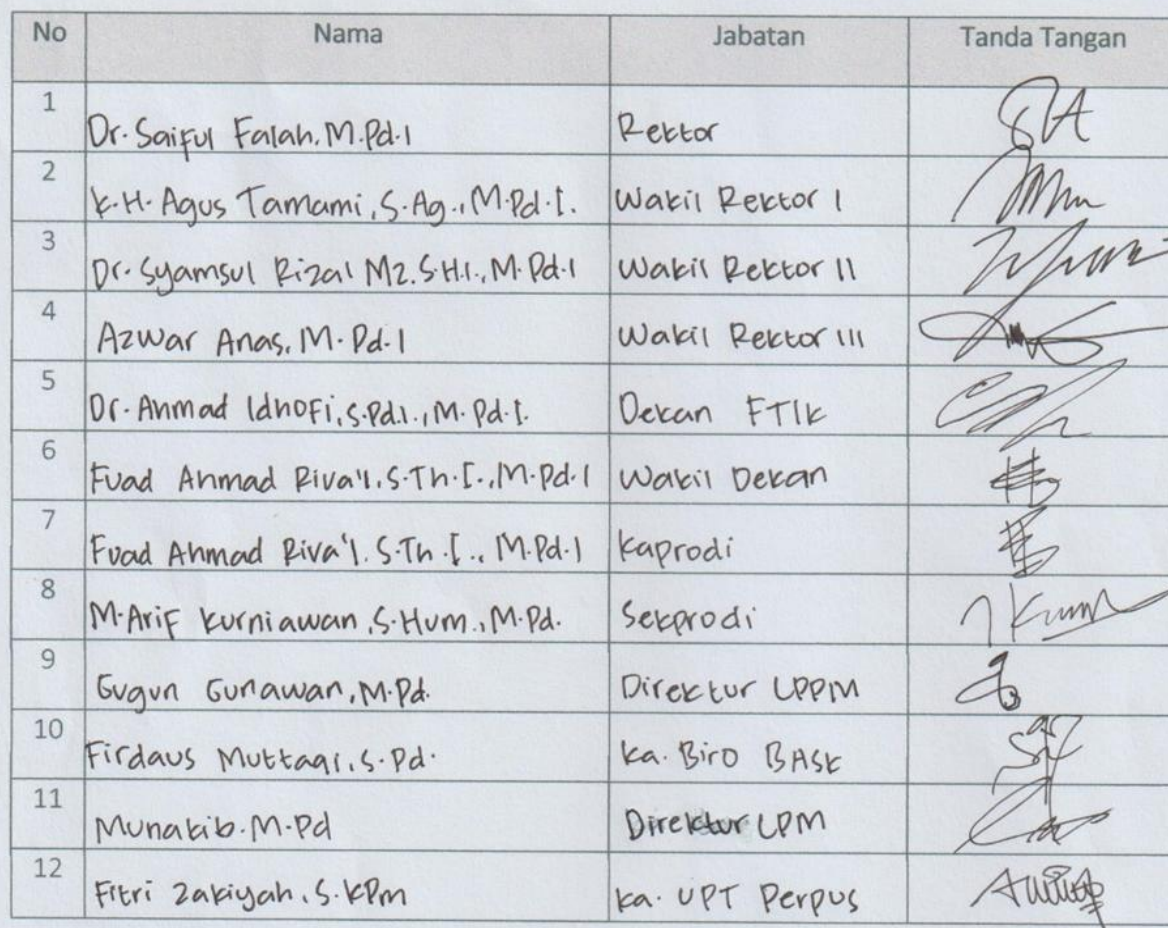 No Nama Jabatan Tanda Tangan
1 Dr. Saiful Falah, M.Pd.I Rektor
2 K.H. Agus Tamami, S.Ag., M.Pd.I. Wakil Rektor I
3 Dr. Syamsul Rizal Mz. S.H.I., M.Pd.I Wakil Rektor II
4 Azwar Anas, M.Pd.I Wakil Rektor III
5 Dr. Ahmad Idhofi, S.Pd.I., M.Pd.I. Dekan FTIK
6 Fuad Ahmad Riva'I, S.Th.I., M.Pd.I Wakil Dekan
7 Fuad Ahmad Riva'I. S.Th.I., M.Pd.I Kaprodi
8 M.Arif Kurniawan, S.Hum., M.Pd. Sekprodi
9 Gugun Gunawan, M.Pd. Direktur LPPM
10 Firdaus Muttaqi, S.Pd. Ka. Biro BASK
11 Munakib. M.Pd Direktur LPM
12 Fitri Zakiyah, S.KPm Ka. UPT Perpus